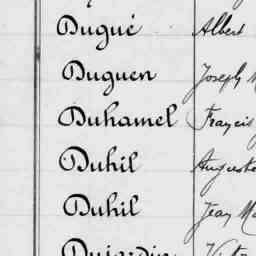 Dugué Albert
Duguen Joseph
Duhamel Francis
Duhil Auguste
Duhil Jean
Dujardin